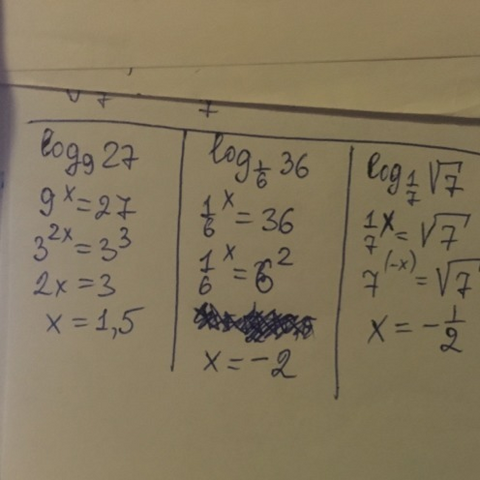 √7 7
log₉ 27
9ˣ = 27
3²ˣ = 3³
2x = 3
x = 1,5
log_{1/6} 36
1/6ˣ = 36
1/6ˣ = 6²
x = -2
log_{1/7} √7
1/7ˣ = √7
7⁽⁻ˣ⁾ = √7
x = -1/2